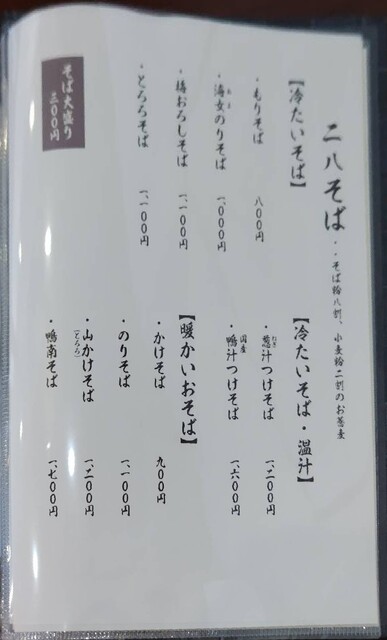 二八そば・・そば粉八割、小麦粉二割のお蕎麦
【冷たいそば】
・もりそば 八〇〇円
・海女のりそば 一、〇〇〇円
・梅おろしそば 一、一〇〇円
・とろろそば 一、一〇〇円
そば大盛り 三〇〇円
【冷たいそば・温汁】
・葱汁つけそば 一、二〇〇円
・国産鴨汁つけそば 一、六〇〇円
【暖かいおそば】
・かけそば 九〇〇円
・のりそば 一、一〇〇円
・山かけそば(とろろ) 一、二〇〇円
・鴨南そば 一、七〇〇円